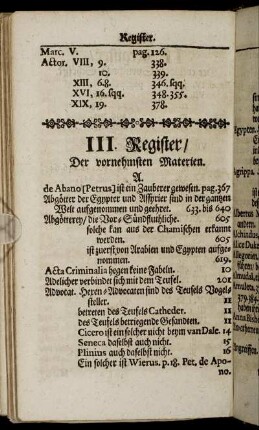 Register.
Marc. V. pag. 126.
Actor. VIII, 9. 338.
10. 339.
XIII, 6.8. 346. sqq.
XVI, 16. sqq. 348-355.
XIX, 19. 378.
III. Register/
Der vornehmsten Materien.
A.
de Abano (Petrus) ist ein Zauberer gewesen. pag. 367
Abgötter der Egypter und Assyrier sind in der gantzen
Welt aufgenommen und geehret. 633. biß 640
Abgötterey/ die Vor-Sündfluthliche. 605
solche kan aus der Chamischen erkannt
werden. 605
ist zuerst von Arabien und Egypten aufge-
nommen. 619.
Acta Criminalia hegen keine Fabeln. 10
Adelicher verbindet sich mit dem Teufel. 201
Advocat. Hexen-Advocaten sind des Teufels Vogel-
steller. 11
betreten des Teufels Catheder. 11
des Teufels betriegende Gesandten. 11
Cicero ist ein solcher nicht beym van Dale. 14
Seneca daselbst auch nicht. 15
Plinius auch daselbst nicht. 16
Ein solcher ist Wierus. p. 18. Pet. de Apo-
no.